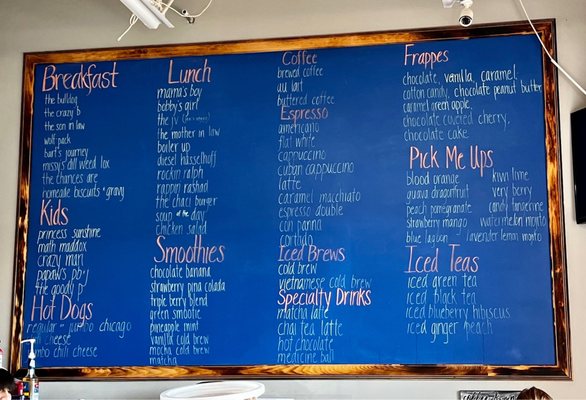 Breakfast
the bulldog
the crazy b
the son in law
wolf pack
bart's journey
missy's dill weed lox
the chances are
homemade biscuits & gravy
Kids
princess sunshine
math maddox
crazy mari
papaw's pb'j
the goody p
Hot Dogs
regular jumbo chicago
cheese
jumbo chili cheese
Lunch
mama's boy
bobby's girl
the jv
the mother in law
boiler up
diesel hasselhoff
rockin ralph
rappin rashad
the chaci burger
soup of the day
chicken salad
Smoothies
chocolate banana
strawberry pina colada
triple berry blend
green smootie
pineapple mint
vanilla cold brew
mocha cold brew
matcha
Coffee
brewed coffee
au lait
buttered coffee
Espresso
americano
flat white
cappuccino
cuban cappuccino
latte
caramel macchiato
espresso double
con panna
cortido
Iced Brews
cold brew
vietnamese cold brew
Specialty Drinks
matcha latte
chai tea latte
hot chocolate
medicine ball
Frappes
chocolate, vanilla, caramel
cotton candy, chocolate peanut butter
caramel green apple,
chocolate covered cherry,
chocolate cake
Pick Me Ups
blood orange kiwi lime
guava dragonfruit very berry
peach pomegranate candy tangerine
strawberry mango watermelon mojito
blue lagoon lavender lemon mojito
Iced Teas
iced green tea
iced black tea
iced blueberry hibiscus
iced ginger peach